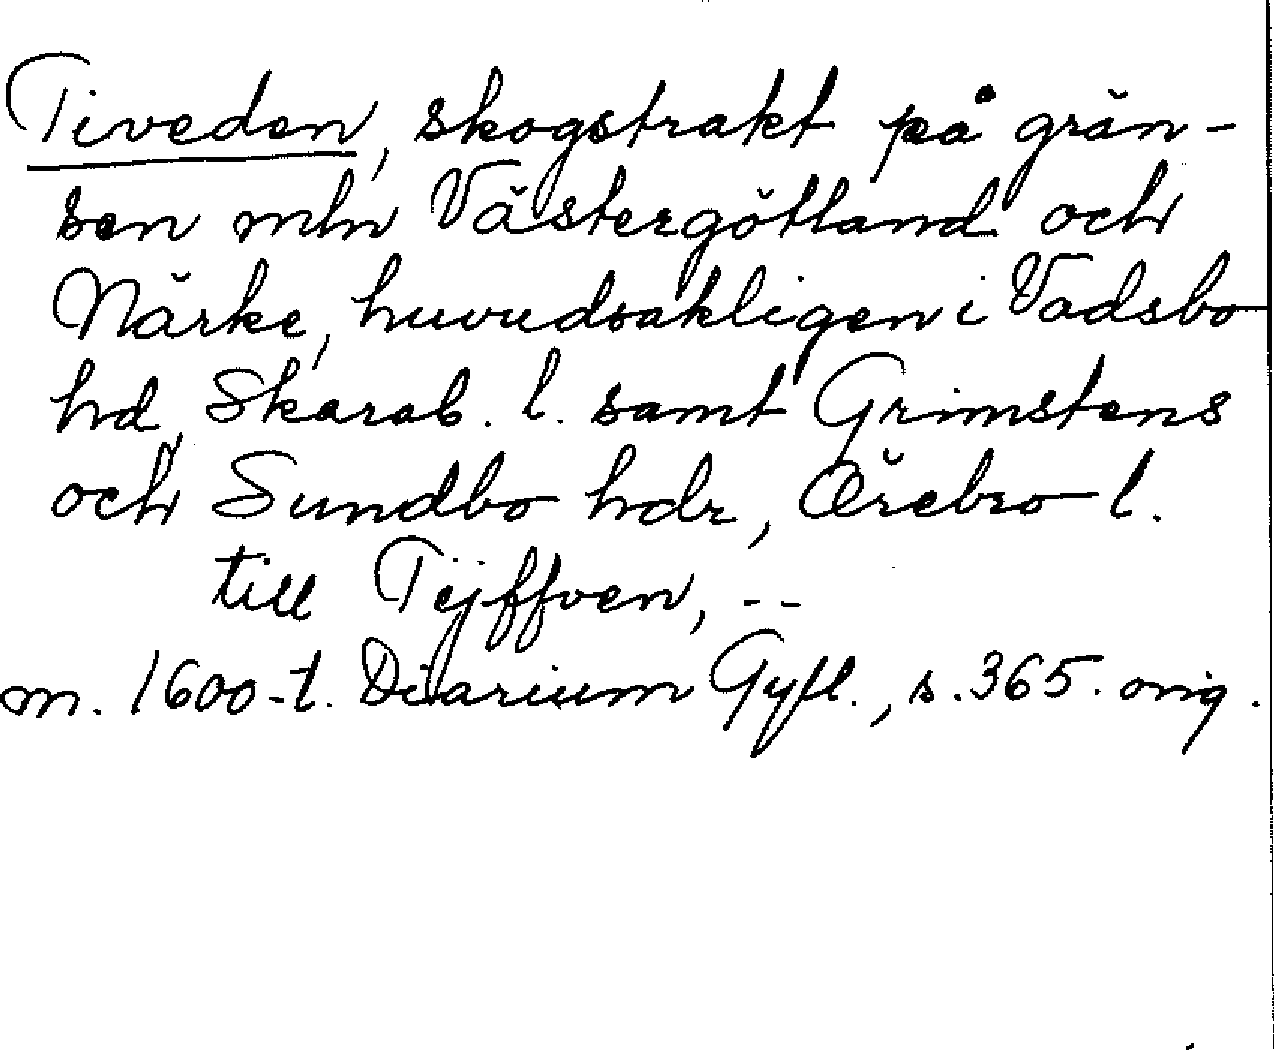 Tiveden, skogstrakt på grän-
sen mln Västergötland och
Närke, huvudsakligen i Vadsbo
hd, Skarab. l. samt Grimstens
och Sundbo hdr, Örebro l.
till Tÿffven, --
m. 1600-t. Diarium Gyll., s. 365. orig.